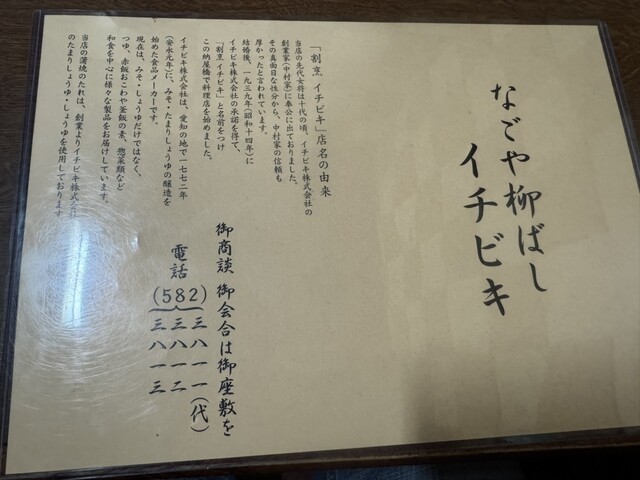 なごや柳ばし
イチビキ
「割烹 イチビキ」店名の由来
当店の先代女将は十代の頃、イチビキ株式会社の
創業家(中村家)に奉公に出ておりました。
その真面目な性分から、中村家の信頼も
厚かったと言われています。
結婚後、一九三九年(昭和十四年)に
イチビキ株式会社の承諾を得て、
「割烹イチビキ」と名前をつけ
この納屋橋で料理店を始めました。
イチビキ株式会社は、愛知の地で一七七二年
(安永元年)に、みそ・たまりしょうゆの醸造を
始めた食品メーカーです。
現在は、みそ・しょうゆだけではなく、
つゆ、赤飯おこわや釜飯の素、惣菜類など
和食を中心に様々な製品をお届けしています。
当店の蒲焼のたれは、創業よりイチビキ株式会社
のたまりしょうゆ・しょうゆを使用しております
御商談 御会合は御座敷を
電話(582)三八一一(代)
三八一二
三八一三